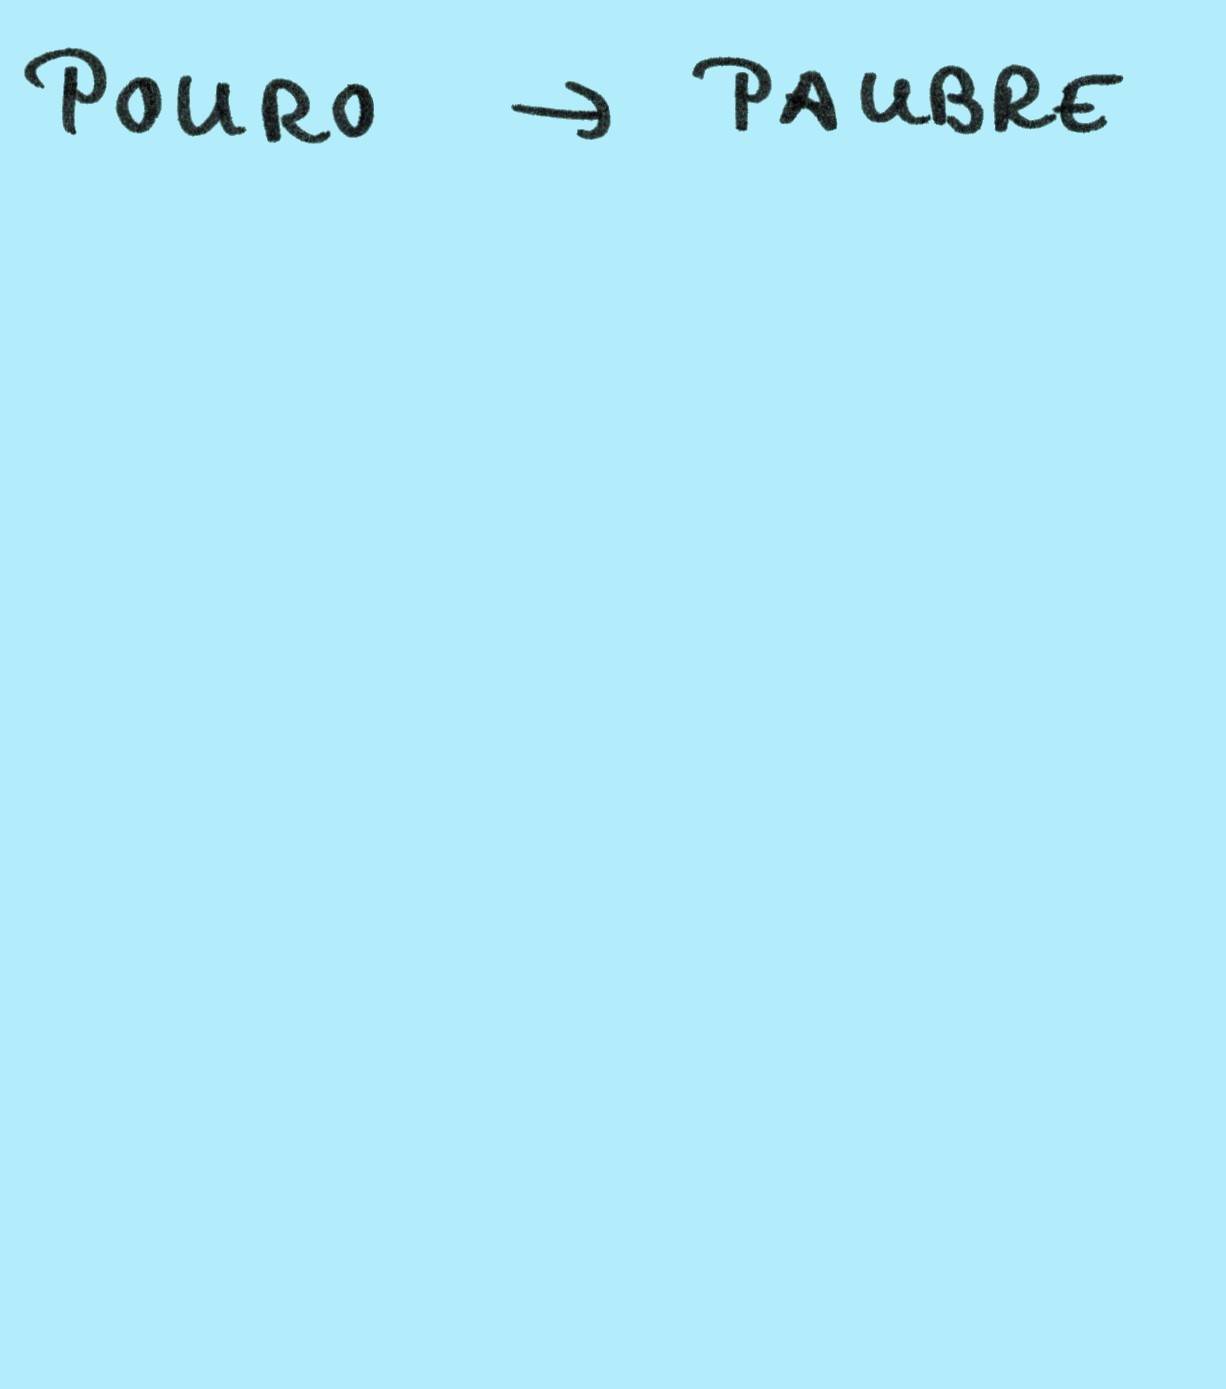 POURO → PAUBRE